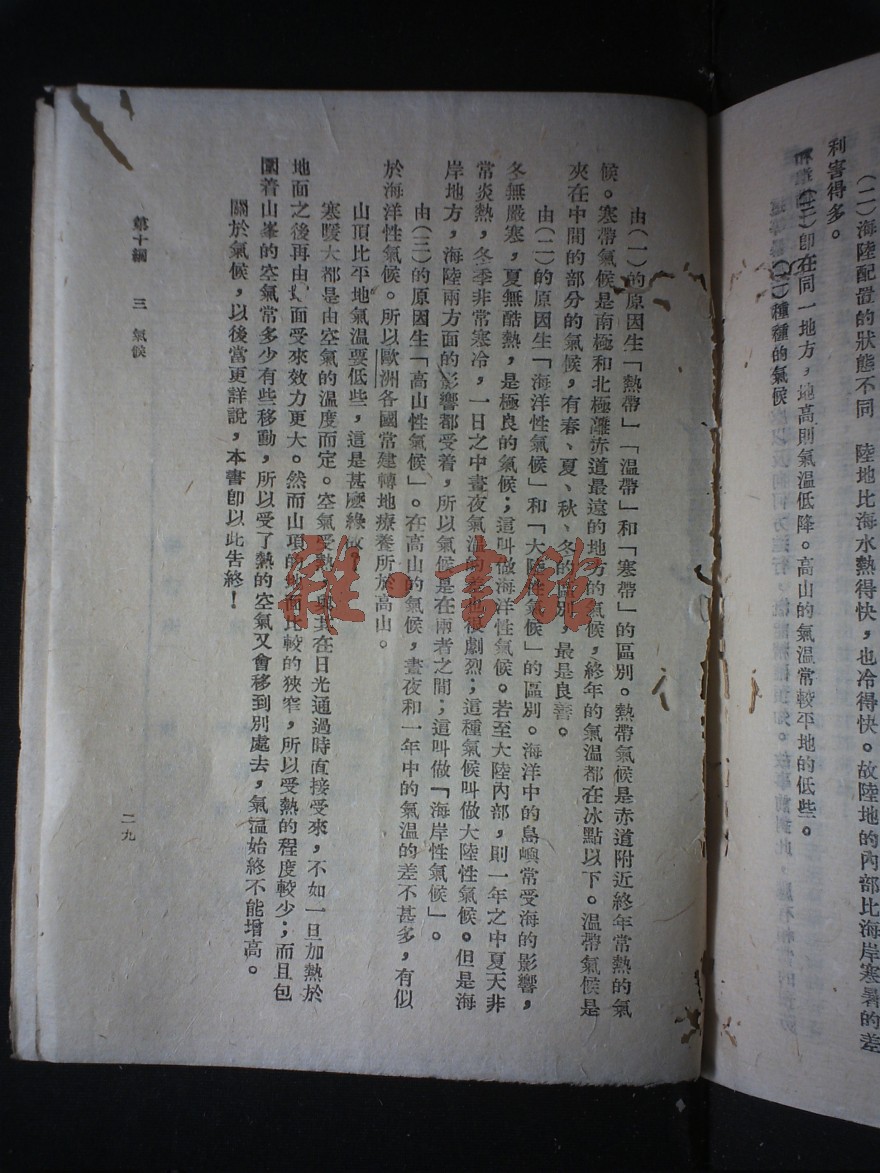 (二)海陸配置的狀態不同　陸地比海水熱得快，也冷得快。故陸地的內部比海岸寒暑的差
利害得多。
(三)卽在同一地方，地高則氣溫低降。高山的氣溫常較平地的低些。
(二)種種的氣候
由(一)的原因生「熱帶」「溫帶」和「寒帶」的區別。熱帶氣候是赤道附近終年常熱的氣
候。寒帶氣候是南極和北極離赤道最遠的地方的氣候，終年的氣溫都在冰點以下。溫帶氣候是
夾在中間的部分的氣候，有春、夏、秋、冬的區別，最是良善。
由(二)的原因生「海洋性氣候」和「大陸性氣候」的區別。海洋中的島嶼常受海的影響，
冬無嚴寒，夏無酷熱，是極良的氣候；這叫做海洋性氣候。若至大陸內部，則一年之中夏天非
常炎熱，冬季非常寒冷，一日之中晝夜氣溫的差也很劇烈；這種氣候叫做大陸性氣候。但是海
岸地方，海陸兩方面的影響都受着，所以氣候是在兩者之間；這叫做「海岸性氣候」。
由(三)的原因生「高山性氣候」。在高山的氣候，晝夜和一年中的氣溫的差不甚多，有似
於海洋性氣候。所以歐洲各國常建轉地療養所於高山。
山頂比平地氣溫要低些，這是甚麼緣故？
寒暖大都是由空氣的溫度而定。空氣受熱，與其在日光通過時直接受來，不如一旦加熱於
地面之後再由地面受來效力更大。然而山頂的地面比較的狹窄，所以受熱的程度較少；而且包
圍着山峯的空氣常多少有些移動，所以受了熱的空氣又會移到別處去，氣溫始終不能增高。
關於氣候，以後當更詳說，本書卽以此告終！
第十綱　三　氣候
二九
雜·書館